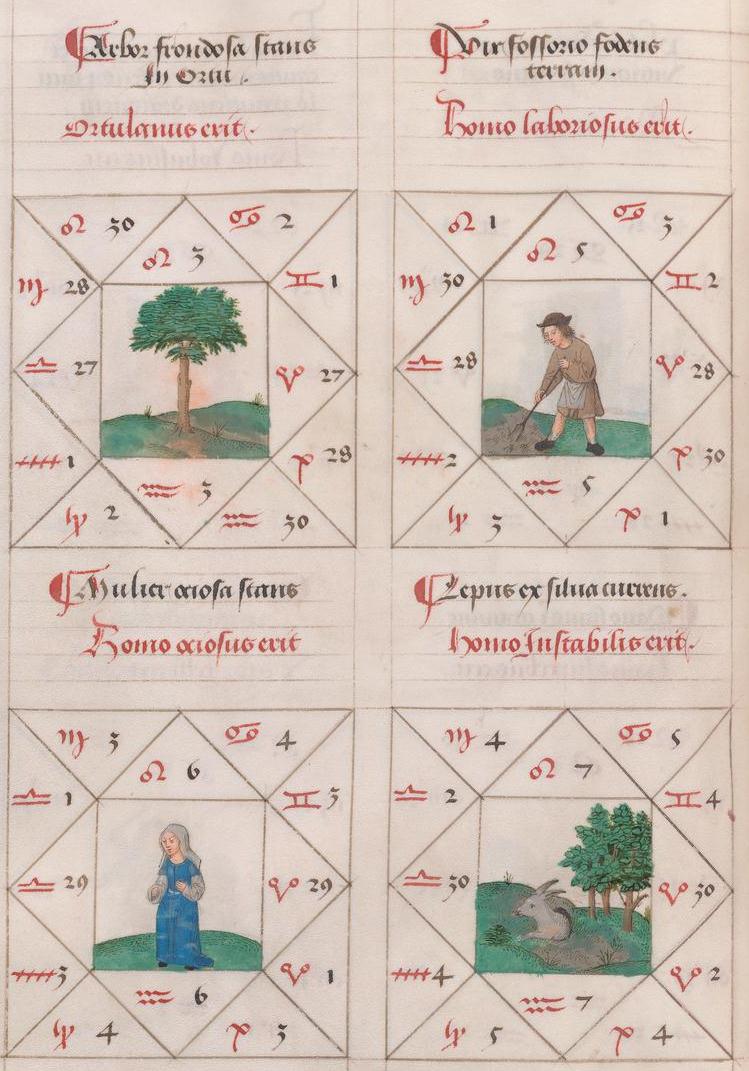 Arbor frondosa stans
In Ortu .
Ortulanus erit.
♌ 30 ♋ 2
♌ 3
♍ 28 ♊ 1
♎ 27 ♈ 27
♐ 1 ♓ 28
♒ 3
♑ 2 ♒ 30
Vir fossorio fodens
terram .
Homo laboriosus erit.
♌ 1 ♋ 3
♌ 5
♍ 30 ♊ 2
♎ 28 ♈ 28
♐ 2 ♓ 30
♒ 5
♑ 3 ♓ 1
Mulier ociosa stans
Homo ociosus erit
♍ 3 ♋ 4
♌ 6
♎ 1 ♊ 3
♎ 29 ♈ 29
♐ 3 ♈ 1
♒ 6
♑ 4 ♓ 3
Lepus ex silua currens.
Homo Instabilis erit.
♍ 4 ♋ 5
♌ 7
♎ 2 ♊ 4
♎ 30 ♈ 30
♐ 4 ♈ 2
♒ 7
♑ 5 ♓ 4